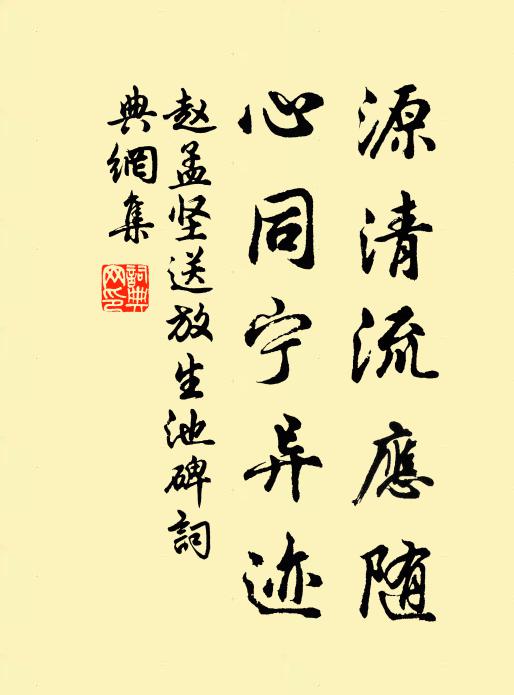 源清流應随
心同宁异迹
赵孟坚送放生池碑詞
典網集
詞典网印